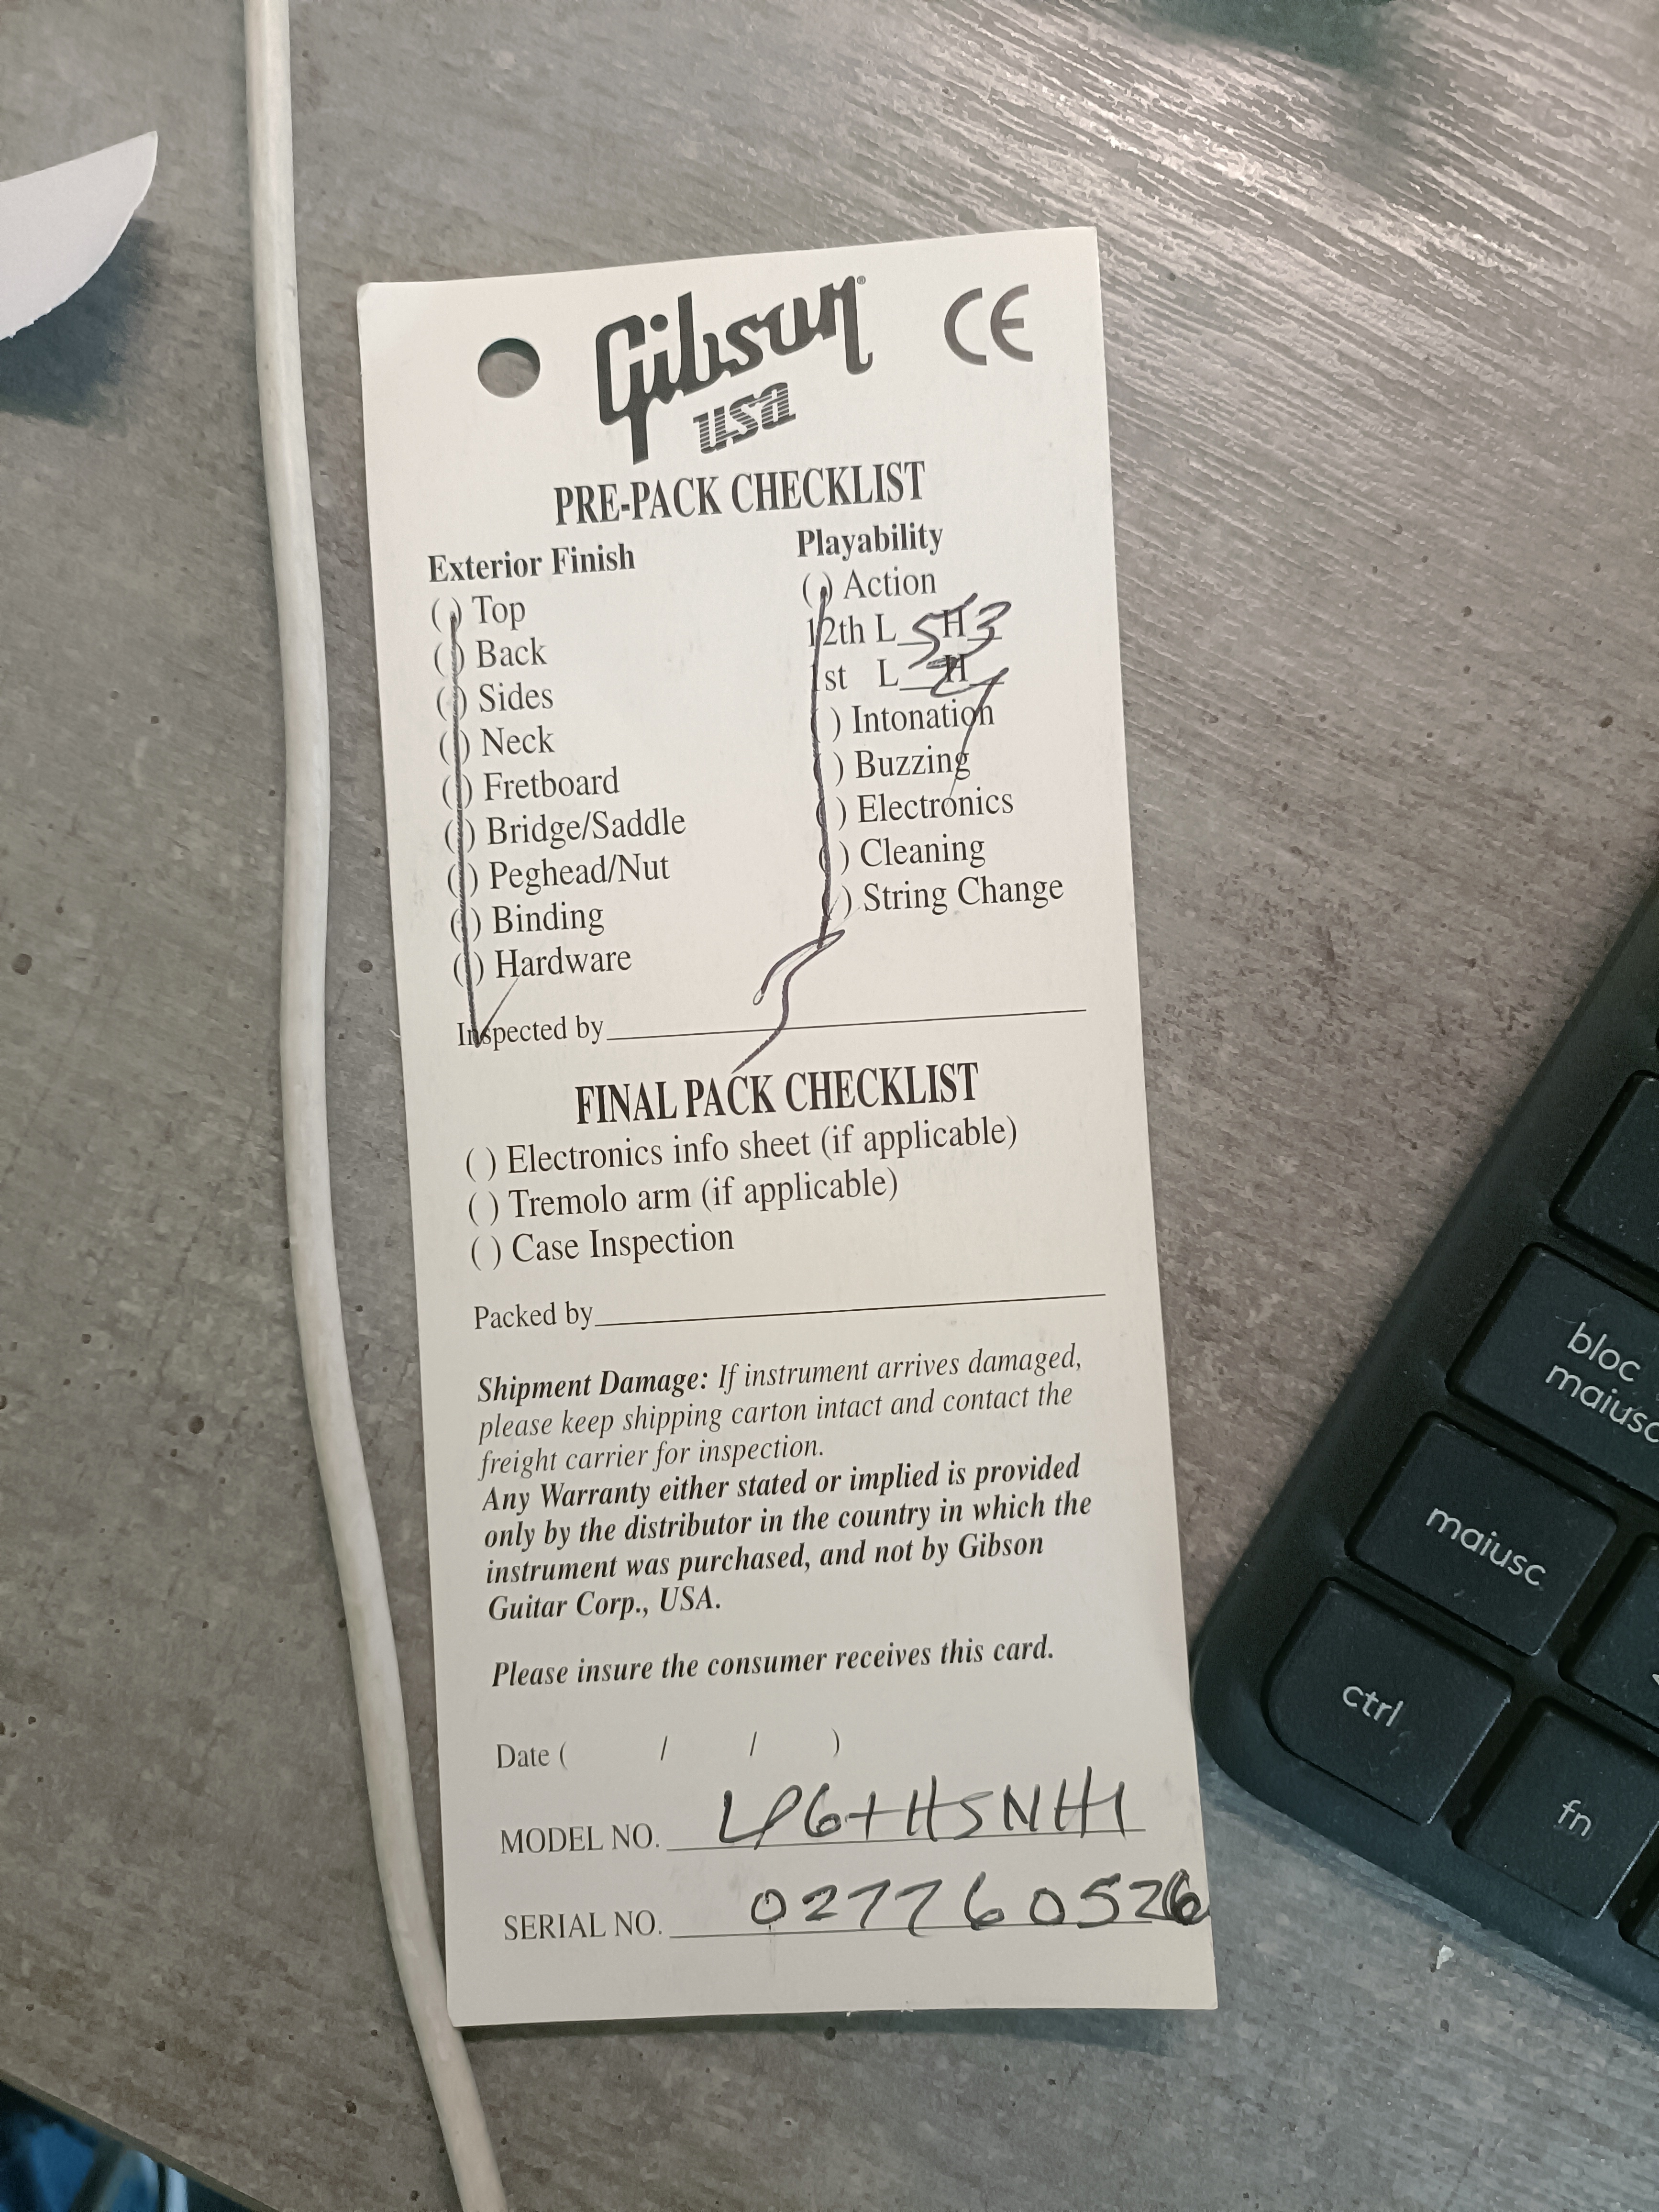 Gibson® CE
USA
PRE-PACK CHECKLIST
Exterior Finish
( ) Top
( ) Back
( ) Sides
( ) Neck
( ) Fretboard
( ) Bridge/Saddle
( ) Peghead/Nut
( ) Binding
( ) Hardware
Playability
( ) Action
12th L 5 H 3
1st L H
( ) Intonation
( ) Buzzing
( ) Electronics
( ) Cleaning
( ) String Change
Inspected by
FINAL PACK CHECKLIST
( ) Electronics info sheet (if applicable)
( ) Tremolo arm (if applicable)
( ) Case Inspection
Packed by
Shipment Damage: If instrument arrives damaged,
please keep shipping carton intact and contact the
freight carrier for inspection.
Any Warranty either stated or implied is provided
only by the distributor in the country in which the
instrument was purchased, and not by Gibson
Guitar Corp., USA.
Please insure the consumer receives this card.
Date ( / / )
MODEL NO. LP6+HSNH1
SERIAL NO. 027760526
bloc
maiusc
maiusc
ctrl
fn